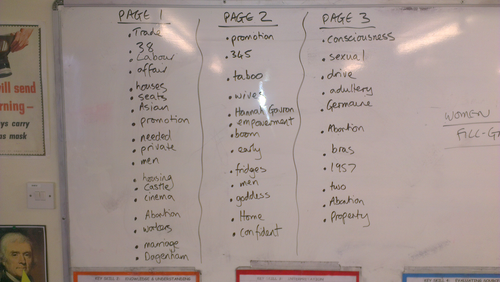 PAGE 1
• Trade
• 38
• Labour
• affair
• houses
• seats
• Asian
• promotion
• needed
• private
• men
• housing
• Castle
• cinema
• Abortion
• waters
• marriage
• Dagenham
PAGE 2
• promotion
• 345
• taboo
• wives
• Hannah Gavron
• empowerment
• boom
• early
• fridges
• men
• goddess
• Home
• confident
PAGE 3
• consciousness
• sexual
• drive
• adultery
• Germaine
• Abortion
• bras
• 1957
• two
• Abortion
• Property
WOMEN
FILL-G
will send
rning –
carry
mask